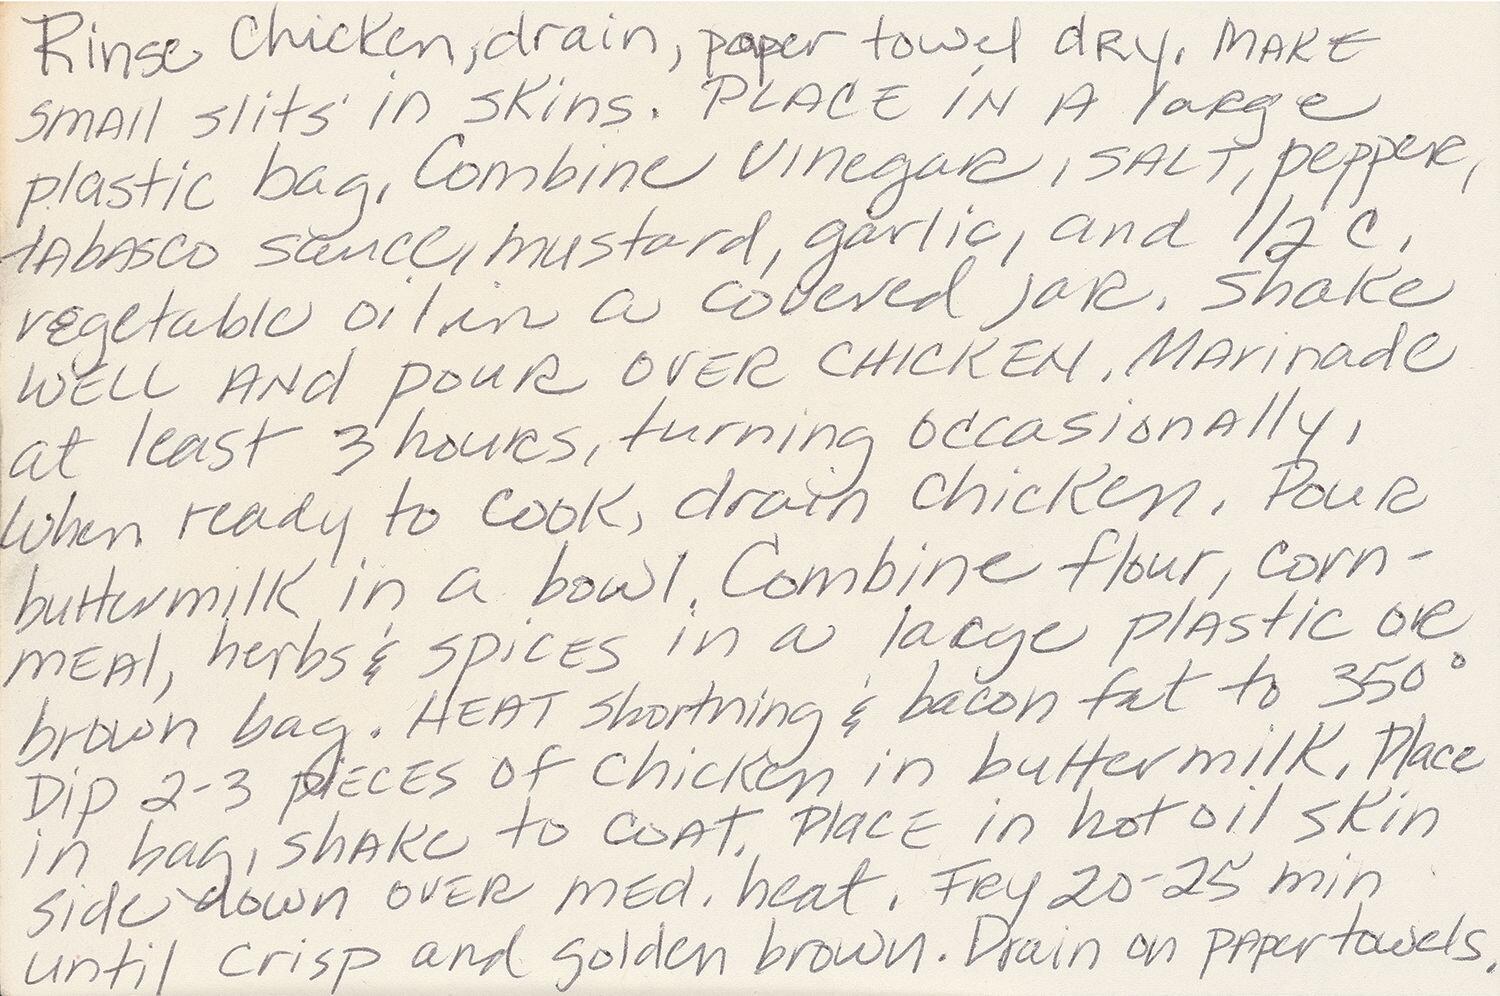 Rinse Chicken, drain, paper towel dry. MAKE
small slits in skins. PLACE IN A large
plastic bag. Combine vinegar, SALT, pepper,
tabasco sauce, mustard, garlic, and 1/2 c.
vegetable oil in a covered jar. Shake
WELL AND pour OVER CHICKEN. Marinade
at least 3 hours, turning occasionally.
When ready to cook, drain chicken. Pour
buttermilk in a bowl. Combine flour, corn-
MEAl, herbs & spices in a large plastic or
brown bag. HEAT shortning & bacon fat to 350°
Dip 2-3 pieces of chicken in buttermilk. Place
in bag, shake to coat. Place in hot oil skin
side down over med. heat. Fry 20-25 min
until crisp and golden brown. Drain on paper towels.